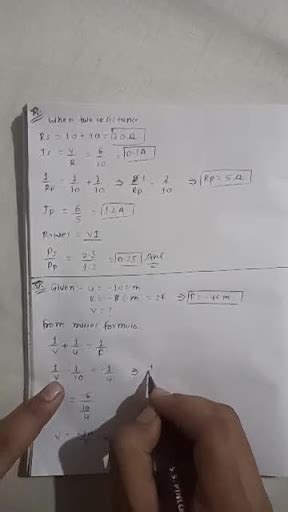 When two resistance
Rs = 10 + 10 = 20 Ω
Is = V/R = 6/10 = 0.3A
1/Rp = 1/10 + 1/10 ⇒ 1/Rp = 2/10 Rp = 5Ω
Ip = 6/5 = 1.2A
Power = VI
Ps/Pp = 0.3/1.2 = 0.25 Ans
Given:- u = -10cm
R = -8cm = 2f ⇒ f = -4cm
V = ?
from mirror formula
1/v + 1/u = 1/f
1/v - 1/10 = -1/4 ⇒